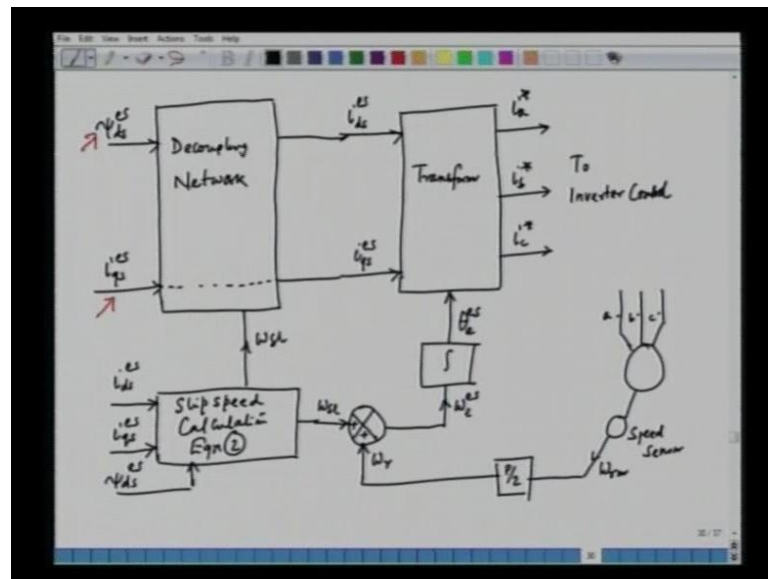 File Edit View Insert Actions Tools Help
ψds^es
Decoupling
Network
ids^es
Transform
ia*
ib*
ic*
To
Inverter Control
iqs^es
iqs^es
ωsl
θe^es
∫
ωe^es
ids^es
iqs^es
ψds^es
Slip speed
Calculation
Eqn ②
ωsl
+
+
ωr
P/2
a
b
c
Speed
Sensor
ωrm
30 / 37
30